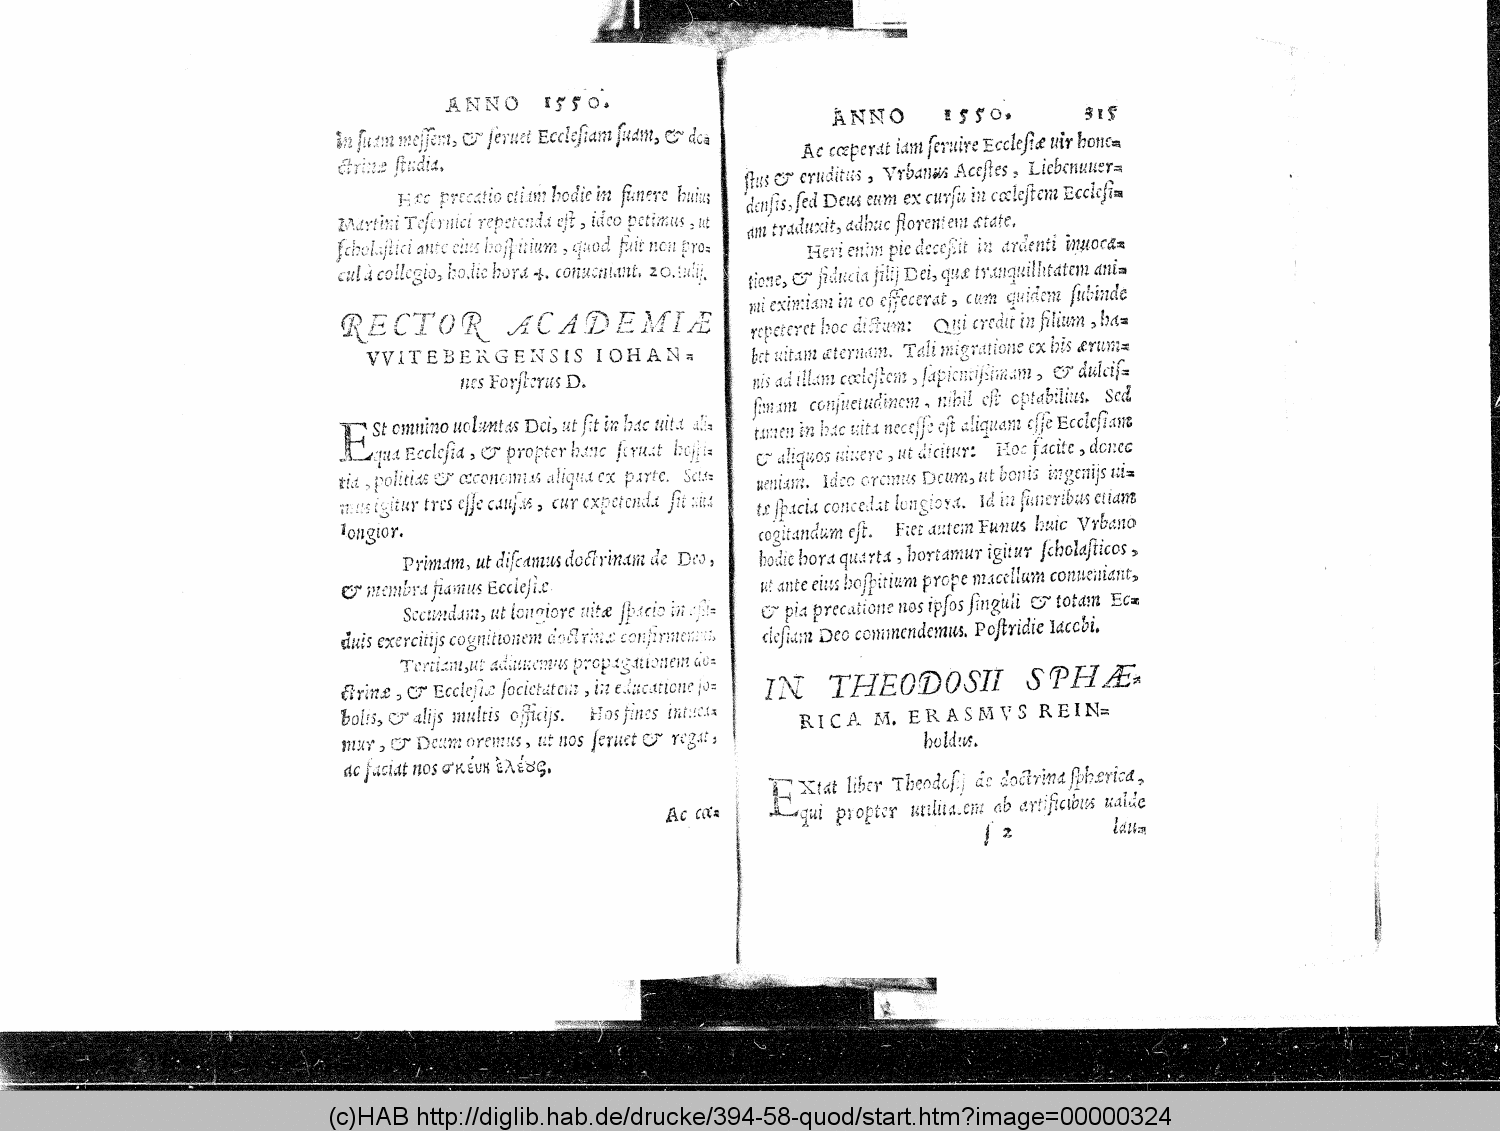 ANNO 1550.
in suam messem, & seruet Ecclesiam suam, & do=
ctrinæ studia.
Hæc precatio etiam hodie in funere huius
Martini Tesernici repetenda est, ideo petimus, ut
scholastici ante eius hospitium, quod fuit non pro=
cul à collegio, hodie hora 4. conueniant. 20. iulij.
RECTOR ACADEMIÆ
VVITEBERGENSIS IOHAN=
nes Forsterus D.
ESt omnino uoluntas Dei, ut sit in hac uita ali=
qua Ecclesia, & propter hanc seruat hospi=
tia, politias & œconomias aliqua ex parte. Scia=
mus igitur tres esse causas, cur expetenda sit uita
longior.
Primam, ut discamus doctrinam de Deo,
& membra fiamus Ecclesiæ.
Secundam, ut longiore uitæ spacio in assi=
duis exercitijs cognitionem doctrinæ confirmemus,
Tertiam, ut adiuuemus propagationem do=
ctrinæ, & Ecclesiæ societatem, in educatione so=
bolis, & alijs multis officijs. Hos fines intuea=
mur, & Deum oremus, ut nos seruet & regat,
ac faciat nos σκέυη ἐλέους.
Ac cœ=
ANNO 1550. 315
Ac cœperat iam seruire Ecclesiæ uir hone=
stus & eruditus, Vrbanus Acestes, Liebenuuer=
densis, sed Deus eum ex cursu in cœlestem Ecclesi=
am traduxit, adhuc florentem ætate.
Heri enim pie decessit in ardenti inuoca=
tione, & fiducia filij Dei, quæ tranquillitatem ani=
mi eximiam in eo effecerat, cum quidem subinde
repeteret hoc dictum: Qui credit in filium, ha=
bet uitam æternam. Tali migratione ex his ærum=
nis ad illam cœlestem, sapientissimam, & dulcis=
simam consuetudinem, nihil est optabilius. Sed
tamen in hac uita necesse est aliquam esse Ecclesiam
& aliquos uiuere, ut dicitur: Hoc facite, donec
ueniam. Ideo oremus Deum, ut bonis ingenijs ui=
tæ spacia concedat longiora. Id in funeribus etiam
cogitandum est. Fiet autem Funus huic Vrbano
hodie hora quarta, hortamur igitur scholasticos,
ut ante eius hospitium prope macellum conueniant,
& pia precatione nos ipsos singuli & totam Ec=
clesiam Deo commendemus. Postridie Iacobi.
IN THEODOSII SPHÆ=
RICA M. ERASMVS REIN=
holdus.
EXtat liber Theodosij de doctrina sphærica,
qui propter utilitatem ab artificibus ualde
s 2 lau=
(c)HAB http://diglib.hab.de/drucke/394-58-quod/start.htm?image=00000324